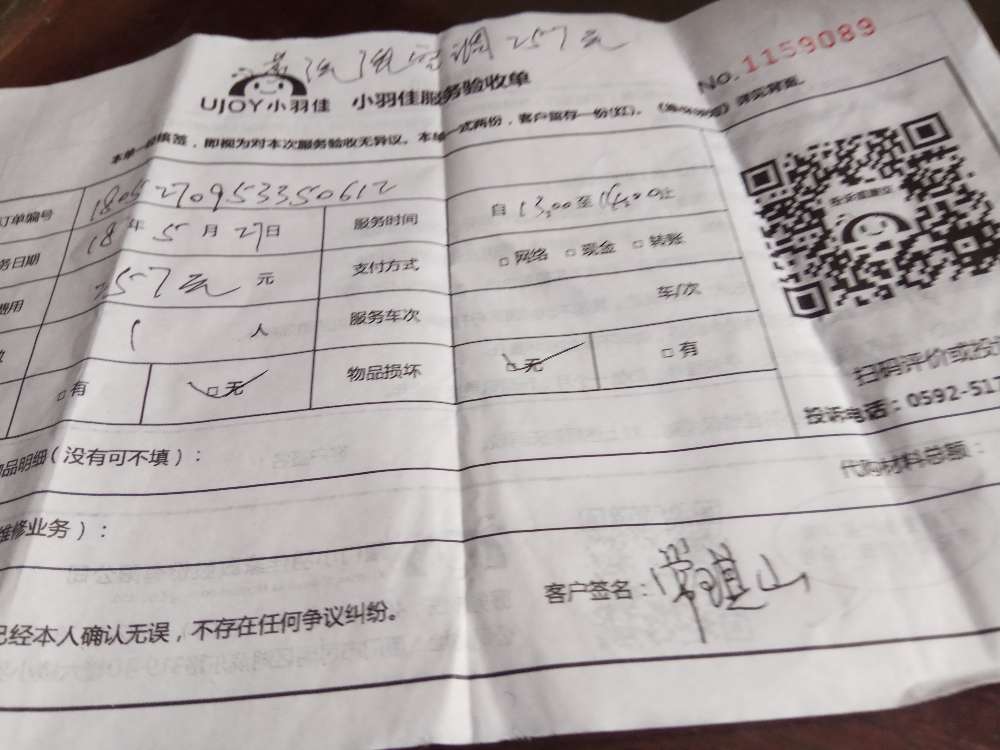 清洗空调257元
UJOY小羽佳 小羽佳服务验收单
No.1159089
本单一经核签，即视为对本次服务验收无异议。本单一式两份，客户留存一份(红)。详见背面。
订单编号 1805270953350612
务日期 18年5月27日 服务时间 自13:00至16:00止
费用 257元 元 支付方式 □网络 □现金 □转账
1人 服务车次 车/次
□有 □无 物品损坏 □无 □有
扫码评价或投
投诉电话：0592-517
物品明细（没有可不填）：
代购材料总额：
维修业务）：
客户签名：
已经本人确认无误，不存在任何争议纠纷。